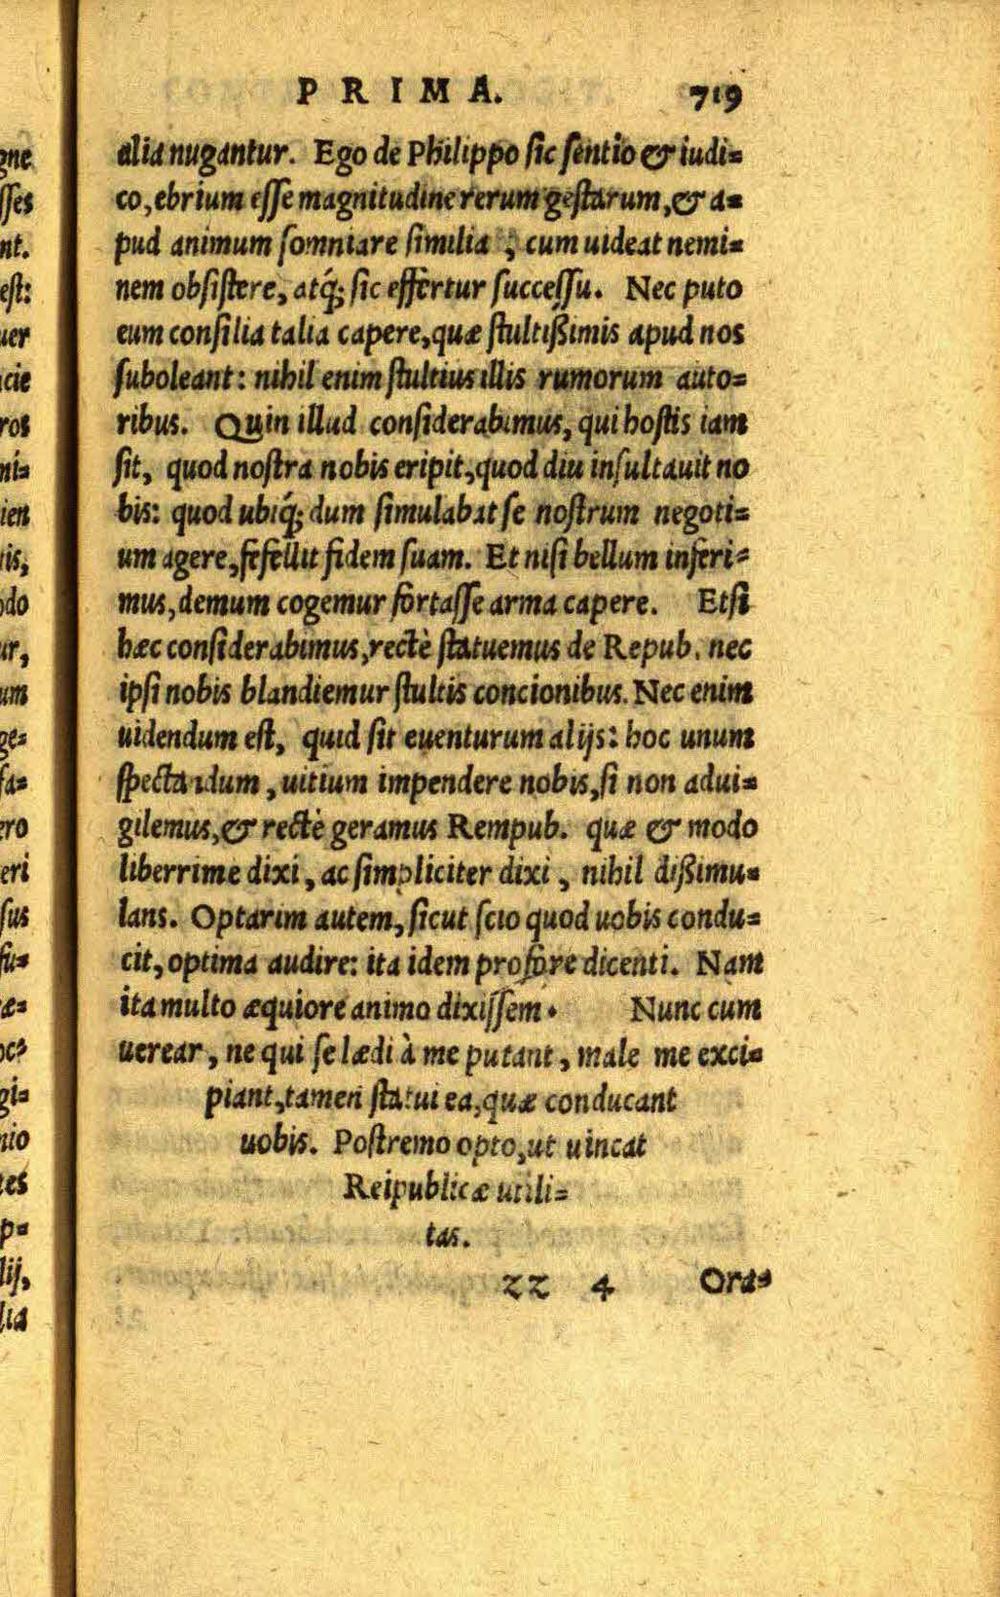 PRIMA. 719
alia nugantur. Ego de Philippo sic sentio & iudi=
co, ebrium esse magnitudine rerum gestarum, & a=
pud animum somniare similia, cum uideat nemi=
nem obsistere, atq́; sic effertur successu. Nec puto
eum consilia talia capere, quæ stultißimis apud nos
suboleant: nihil enim stultius illis rumorum auto=
ribus. Quin illud considerabimus, qui hostis iam
sit, quod nostra nobis eripit, quod diu insultauit no
bis: quod ubiq́; dum simulabat se nostrum negoti=
um agere, fefellit fidem suam. Et nisi bellum inferi=
mus, demum cogemur fortasse arma capere. Etsi
hæc considerabimus, rectè statuemus de Repub. nec
ipsi nobis blandiemur stultis concionibus. Nec enim
uidendum est, quid sit euenturum alijs: hoc unum
spectandum, uitium impendere nobis, si non adui=
gilemus, & rectè geramus Rempub. quæ & modo
liberrime dixi, ac simpliciter dixi, nihil dißimu=
lans. Optarim autem, sicut scio quod uobis condu=
cit, optima audire: ita idem profore dicenti. Nam
ita multo æquiore animo dixissem. Nunc cum
uerear, ne qui se lædi à me putant, male me exci=
piant, tamen statui ea, quæ conducant
uobis. Postremo opto, ut uincat
Reipublicæ utili=
tas.
zz 4 Ora=
gne
sses
nt.
est:
uer
cie
ros
ni=
ien
tis,
do
ur,
um
ge=
fa=
ero
eri
sus
fu=
æ=
oc
gi=
nio
tes
p=
lij,
lia